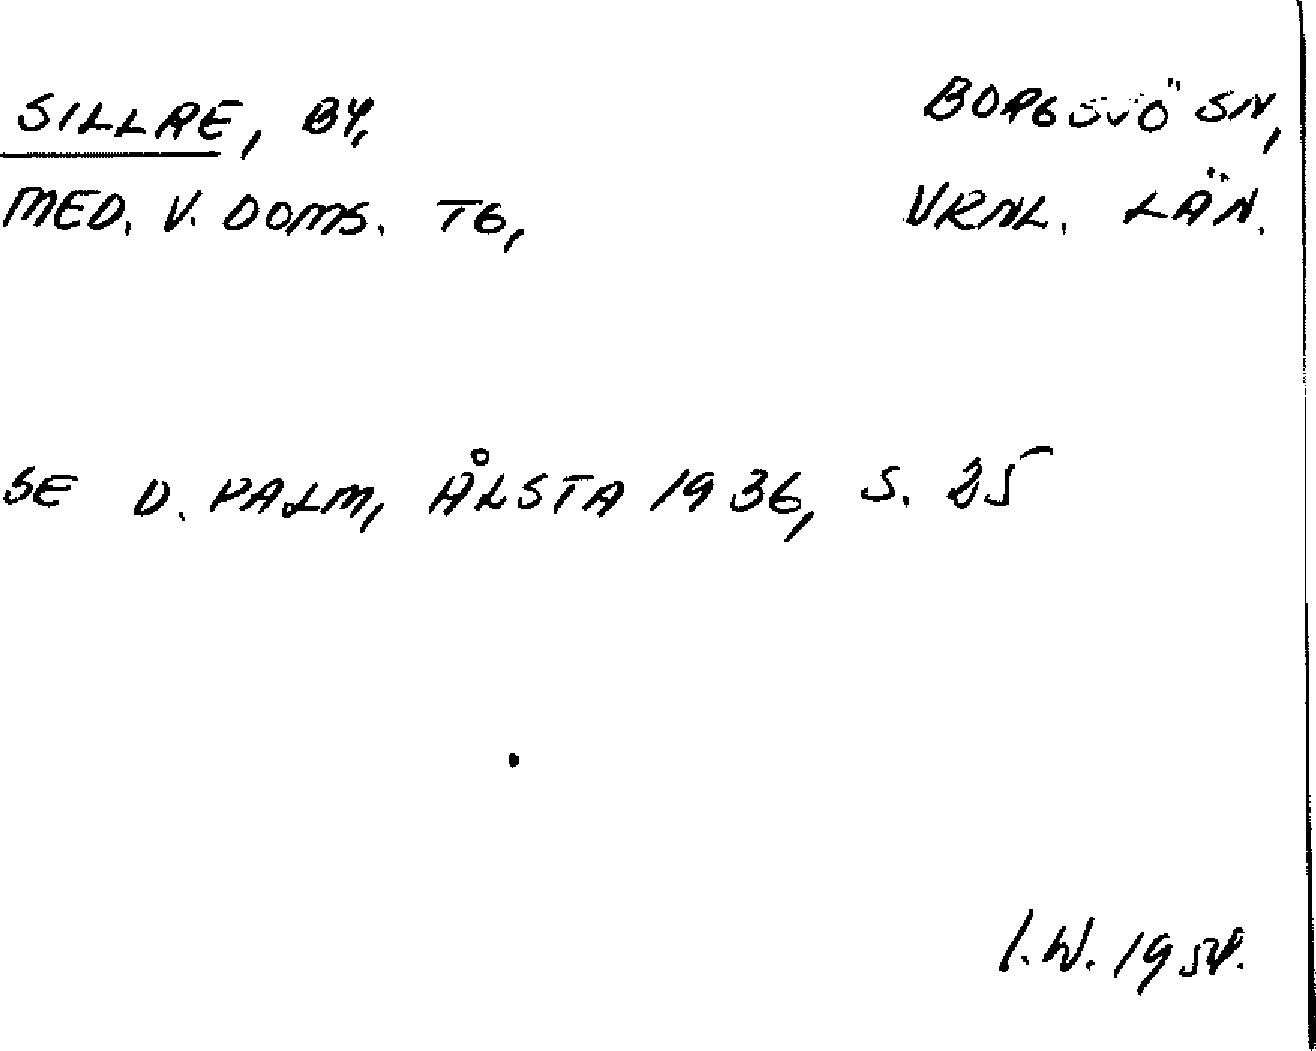 SILLRE, BY, BORGSJÖ SN,
MED. V. DOMS. TG, VRNL. LÄN.
SE D. PALM, ÅLSTA 1936, S. 25
I.W. 1951.